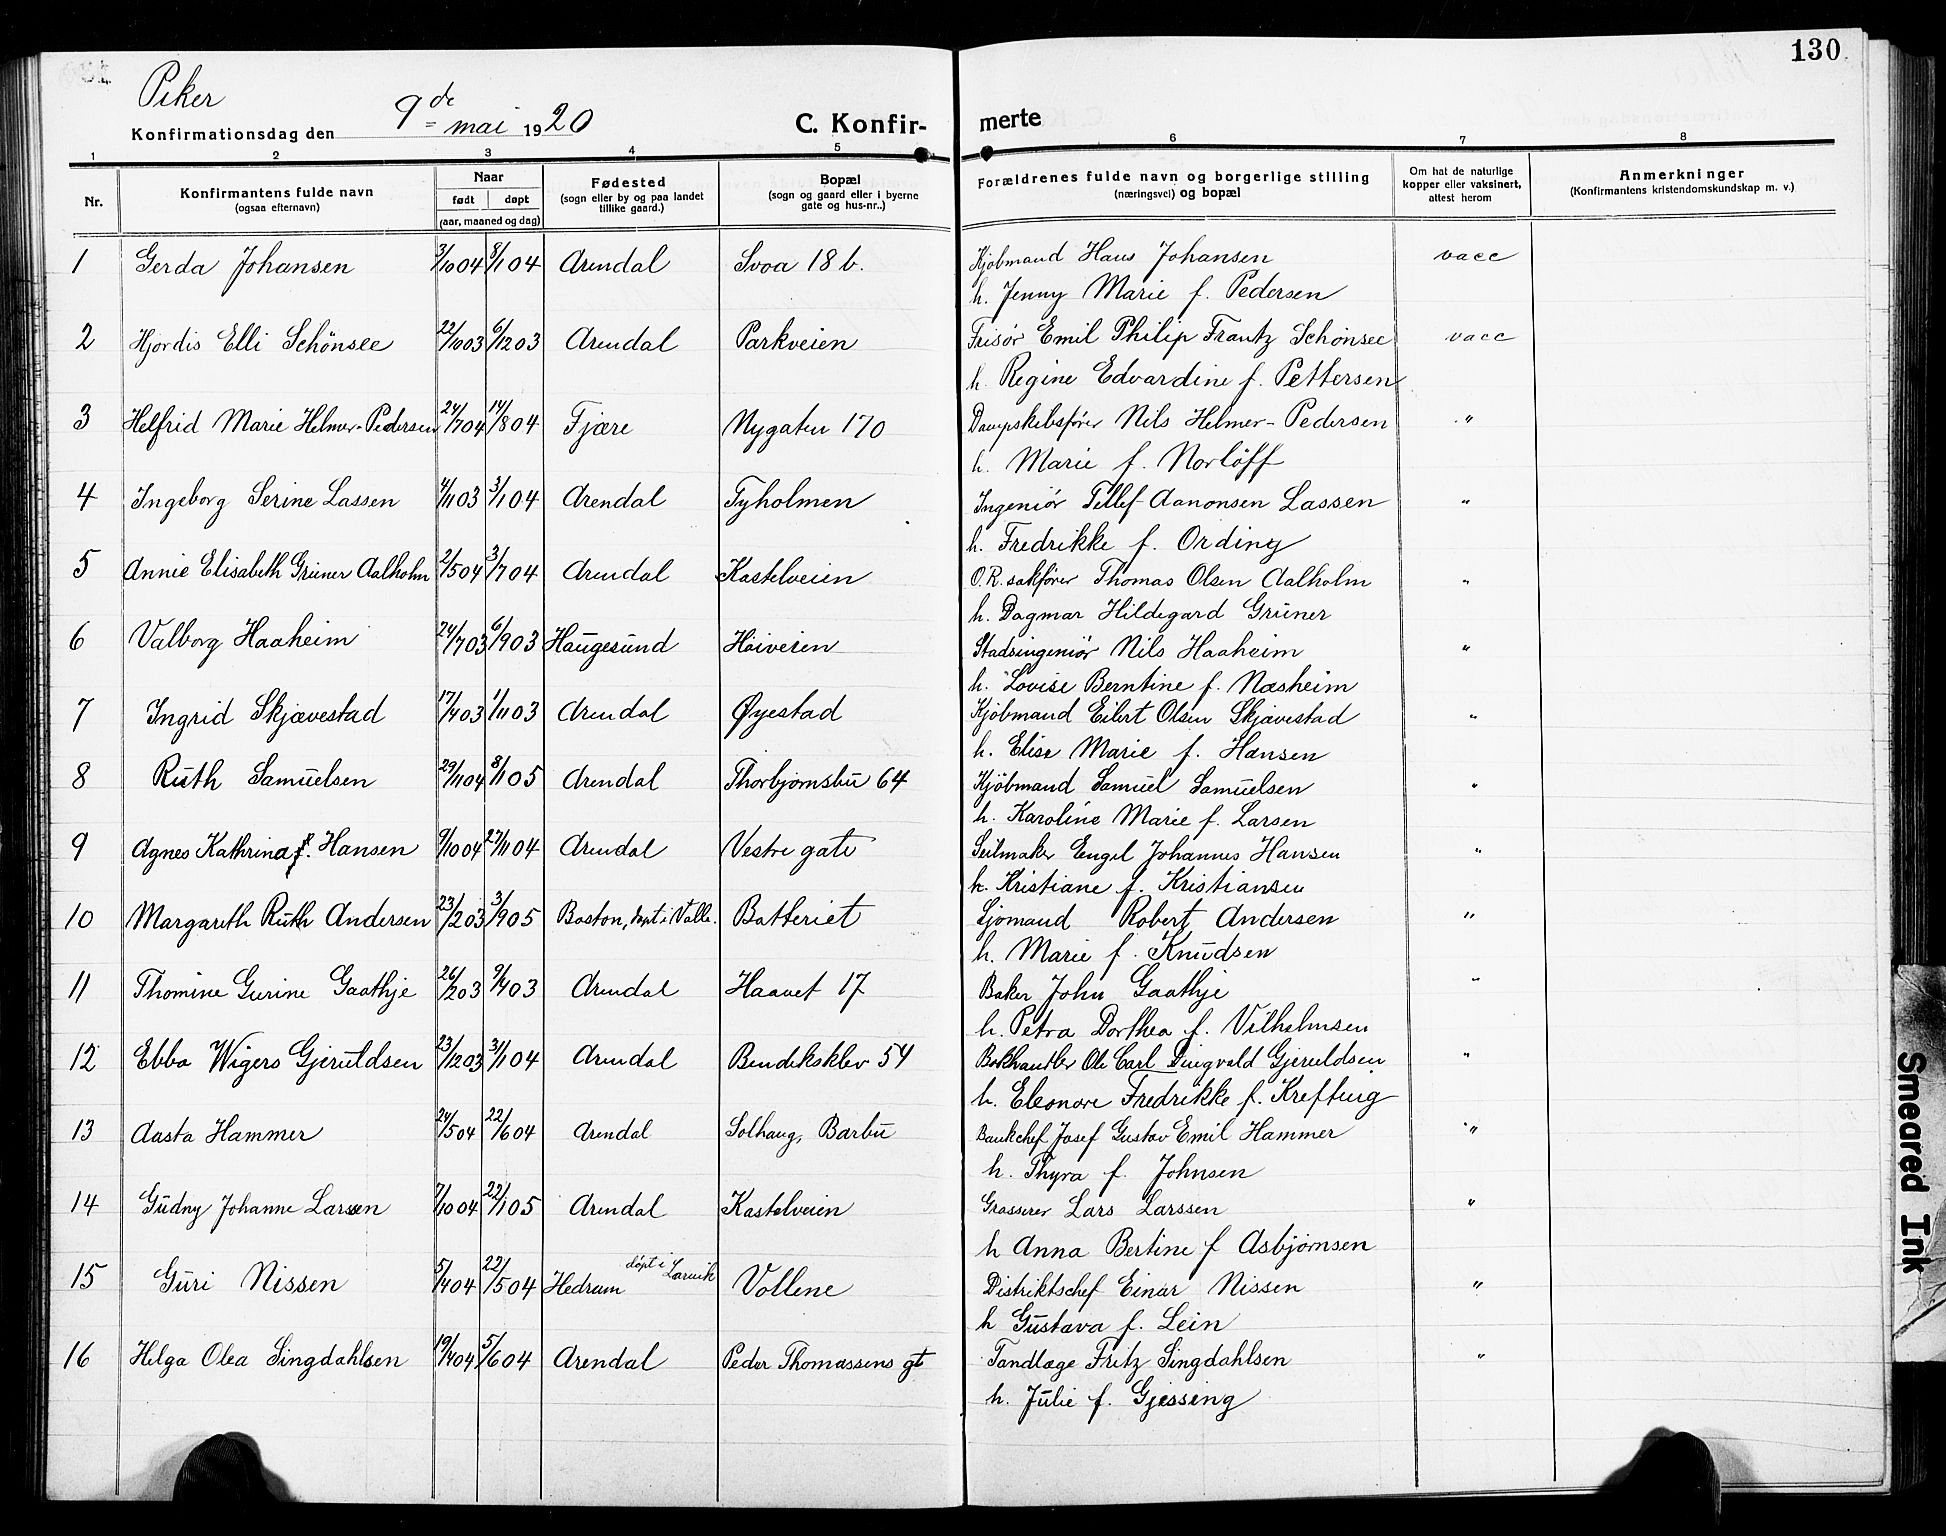 130
Piker
Konfirmationsdag den 9de mai 1920
C. Konfir-
merte
1 2 3 4 5 6 7 8
Nr. Konfirmantens fulde navn (ogsaa efternavn) Naar født døpt (aar, maaned og dag) Fødested (sogn eller by og paa landet tillike gaard.) Bopæl (sogn og gaard eller i byerne gate og hus-nr..) Forældrenes fulde navn og borgerlige stilling (næringsvei) og bopæl Om hat de naturlige kopper eller vaksinert, attest herom Anmerkninger (Konfirmantens kristendomskundskap m. v.)
1 Gerda Johansen 3/10 04 8/1 04 Arendal Svoa 18 b. Kjöbmand Hans Johansen vacc
h. Jenny Marie f. Pedersen
2 Hjördis Elli Schönsee 22/10 03 6/12 03 Arendal Parkveien Frisør Emil Philip Frantz Schönsee vacc
h. Regine Edvardine f. Pettersen
3 Helfrid Marie Helmer-Pedersen 24/7 04 14/8 04 Fjære Nygaten 170 Dampskibsfører Nils Helmer-Pedersen "
h. Marie f. Norlöff
4 Ingeborg Serine Lassen 4/11 03 3/1 04 Arendal Tyholmen Ingeniör Tellef Aanonsen Lassen "
h. Fredrikke f. Ording
5 Annie Elisabeth Grüner Aalholm 2/5 04 3/7 04 Arendal Kastelveien O.R. sakfører Thomas Olsen Aalholm "
h. Dagmar Hildegard Grüner
6 Valborg Haaheim 24/7 03 6/9 03 Haugesund Höiveien Stadsingeniör Nils Haaheim "
h. Lovise Berntine f. Næsheim
7 Ingrid Skjævestad 17/4 03 1/11 03 Arendal Øyestad Kjöbmand Eilert Olsen Skjævestad "
h. Elise Marie f. Hansen
8 Ruth Samuelsen 29/11 04 8/1 05 Arendal Thorbjørnsbu 64 Kjöbmand Samuel Samuelsen "
h. Karoline Marie f. Larsen
9 Agnes Kathrina Hansen 9/10 04 27/11 04 Arendal Vestre gate Seilmaker Engel Johannes Hansen "
h. Kristiane f. Kristiansen
10 Margareth Ruth Andersen 23/2 03 3/9 05 Boston, döpt i Valle. Batteriet Sjömand Robert Andersen "
h. Marie f. Knudsen
11 Thomine Gurine Gaathje 26/2 03 9/4 03 Arendal Haavet 17 Baker John Gaathje "
h. Petra Dorthea f. Vilhelmsen
12 Ebba Wigers Gjeruldsen 23/12 03 31/1 04 Arendal Bendiksklev 54 Bokhandler Ole Carl Dingvald Gjeruldsen "
h. Eleonore Fredrikke f. Krefting
13 Aasta Hammer 24/5 04 22/6 04 Arendal Solhaug, Barbu Bankchef Josef Gustav Emil Hammer "
h. Thyra f. Johnsen
14 Gudny Johanne Larssen 7/10 04 22/1 05 Arendal Kastelveien Grosserer Lars Larssen "
h Anna Bertine f Asbjørnsen
15 Guri Nissen 5/4 04 22/5 04 Hedrum döpt i Larvik Vollene Distriktschef Einar Nissen "
h Gustava f. Lein
16 Helga Olea Singdahlsen 19/4 04 5/6 04 Arendal Peder Thomassens gt Tandlæge Fritz Singdahlsen "
h. Julie f. Gjessing
Smeared Ink